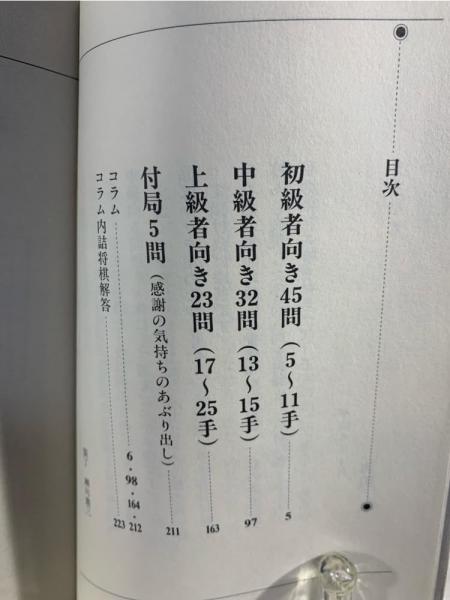 目次
初級者向き45問（5〜11手）……5
中級者向き32問（13〜15手）……97
上級者向き23問（17〜25手）……163
付局5問（感謝の気持ちのあぶり出し）……211
コラム……6・98・164・212
コラム内詰将棋解答……223